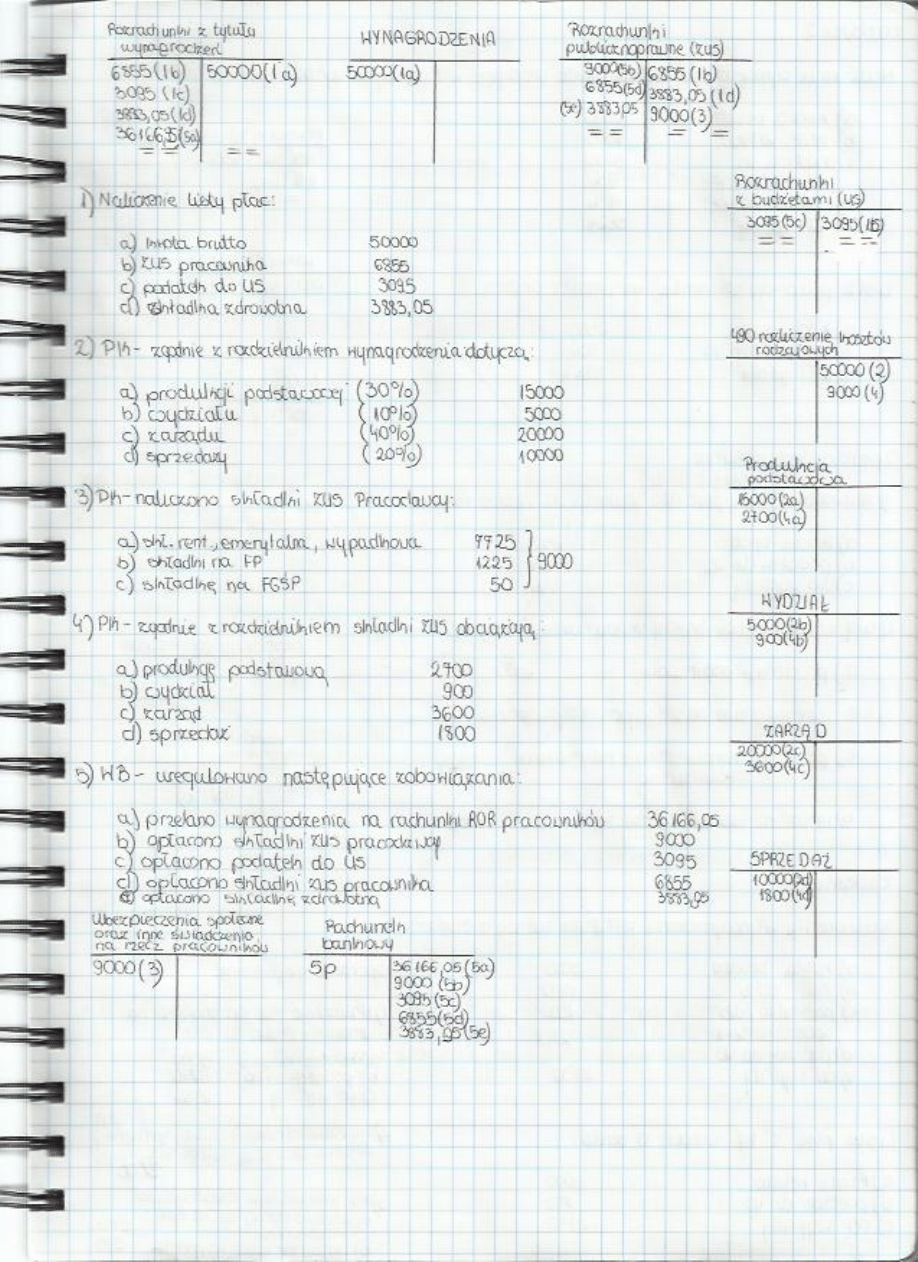 Rozrachunki z tytułu
wynagrodzeń
6855 (1b) 50000 (1a)
3095 (1c)
3883,05 (1d)
36166,5 (5a)
WYNAGRODZENIA
50000 (1a)
Rozrachunki
publicznoprawne (ZUS)
9000 (5b) 6855 (1b)
6855 (5d) 3883,05 (1d)
(5e) 3883,05 9000 (3)
1) Naliczenie listy płac:
a) kwota brutto 50000
b) ZUS pracownika 6855
c) podatek do US 3095
d) składka zdrowotna 3883,05
Rozrachunki
z budżetami (US)
3095 (5c) 3095 (1b)
2) Pk - zgodnie z rozdzielnikiem wynagrodzenia dotyczą:
a) produkcji podstawowej (30%) 15000
b) wydziału (10%) 5000
c) zarządu (40%) 20000
d) sprzedaży (20%) 10000
490 rozliczenie kosztów
rodzajowych
50000 (2)
9000 (4)
3) Pk - naliczono składki ZUS Pracodawcy:
a) skł. rent., emerytalna, wypadkowa 7725
b) składki na FP 1225 9000
c) składkę na FGŚP 50
Produkcja
podstawowa
15000 (2a)
2700 (4a)
4) Pk - zgodnie z rozdzielnikiem składki ZUS obciążają:
a) produkcję podstawową 2700
b) wydział 900
c) zarząd 3600
d) sprzedaż 1800
WYDZIAŁ
5000 (2b)
900 (4b)
ZARZĄD
20000 (2c)
3600 (4c)
5) WB - uregulowano następujące zobowiązania:
a) przelano wynagrodzenia na rachunki ROR pracowników 36166,05
b) opłacono składki ZUS pracodawcy 9000
c) opłacono podatek do US 3095
d) opłacono składki ZUS pracownika 6855
e) opłacono składkę zdrowotną 3883,05
SPRZEDAŻ
10000 (2d)
1800 (4d)
Ubezpieczenia społeczne
oraz inne świadczenia
na rzecz pracowników
9000 (3)
Rachunek
bankowy
Sp 36166,05 (5a)
9000 (5b)
3095 (5c)
6855 (5d)
3883,05 (5e)